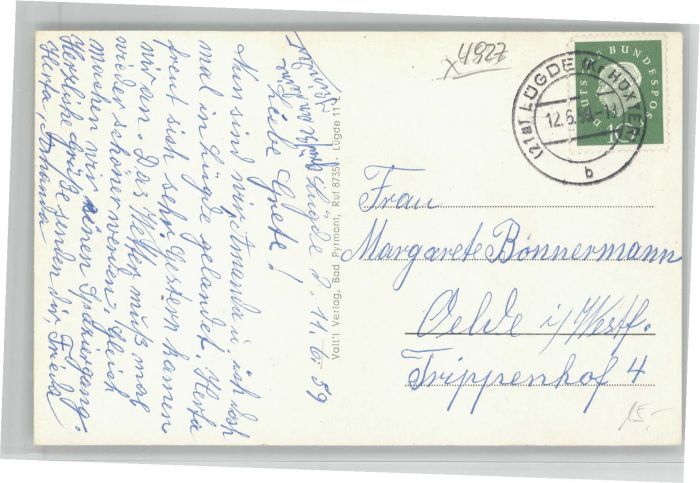 Lügde d. 11.6.59
Liebe Grete!
Nun sind wir, Amanda u. ich doch
mal in Lügde gelandet. Herta
freut sich sehr. Gestern kamen
wir an. Das Wetter muß mal
wieder schöner werden. Gleich
machen wir einen Spaziergang.
Herzliche Grüße senden dir, Frieda
Herta, Amanda
Valt'l Verlag, Bad Pyrmont, Ruf 8735 - Lügde 11
x4927
(21a) LÜGDE (Kr HÖXTER)
12.6.59
b
DEUTSCHE BUNDESPOST
10
Frau
Margarete Bönnermann
Oelde i/Westf.
Trippenhof 4
15.-